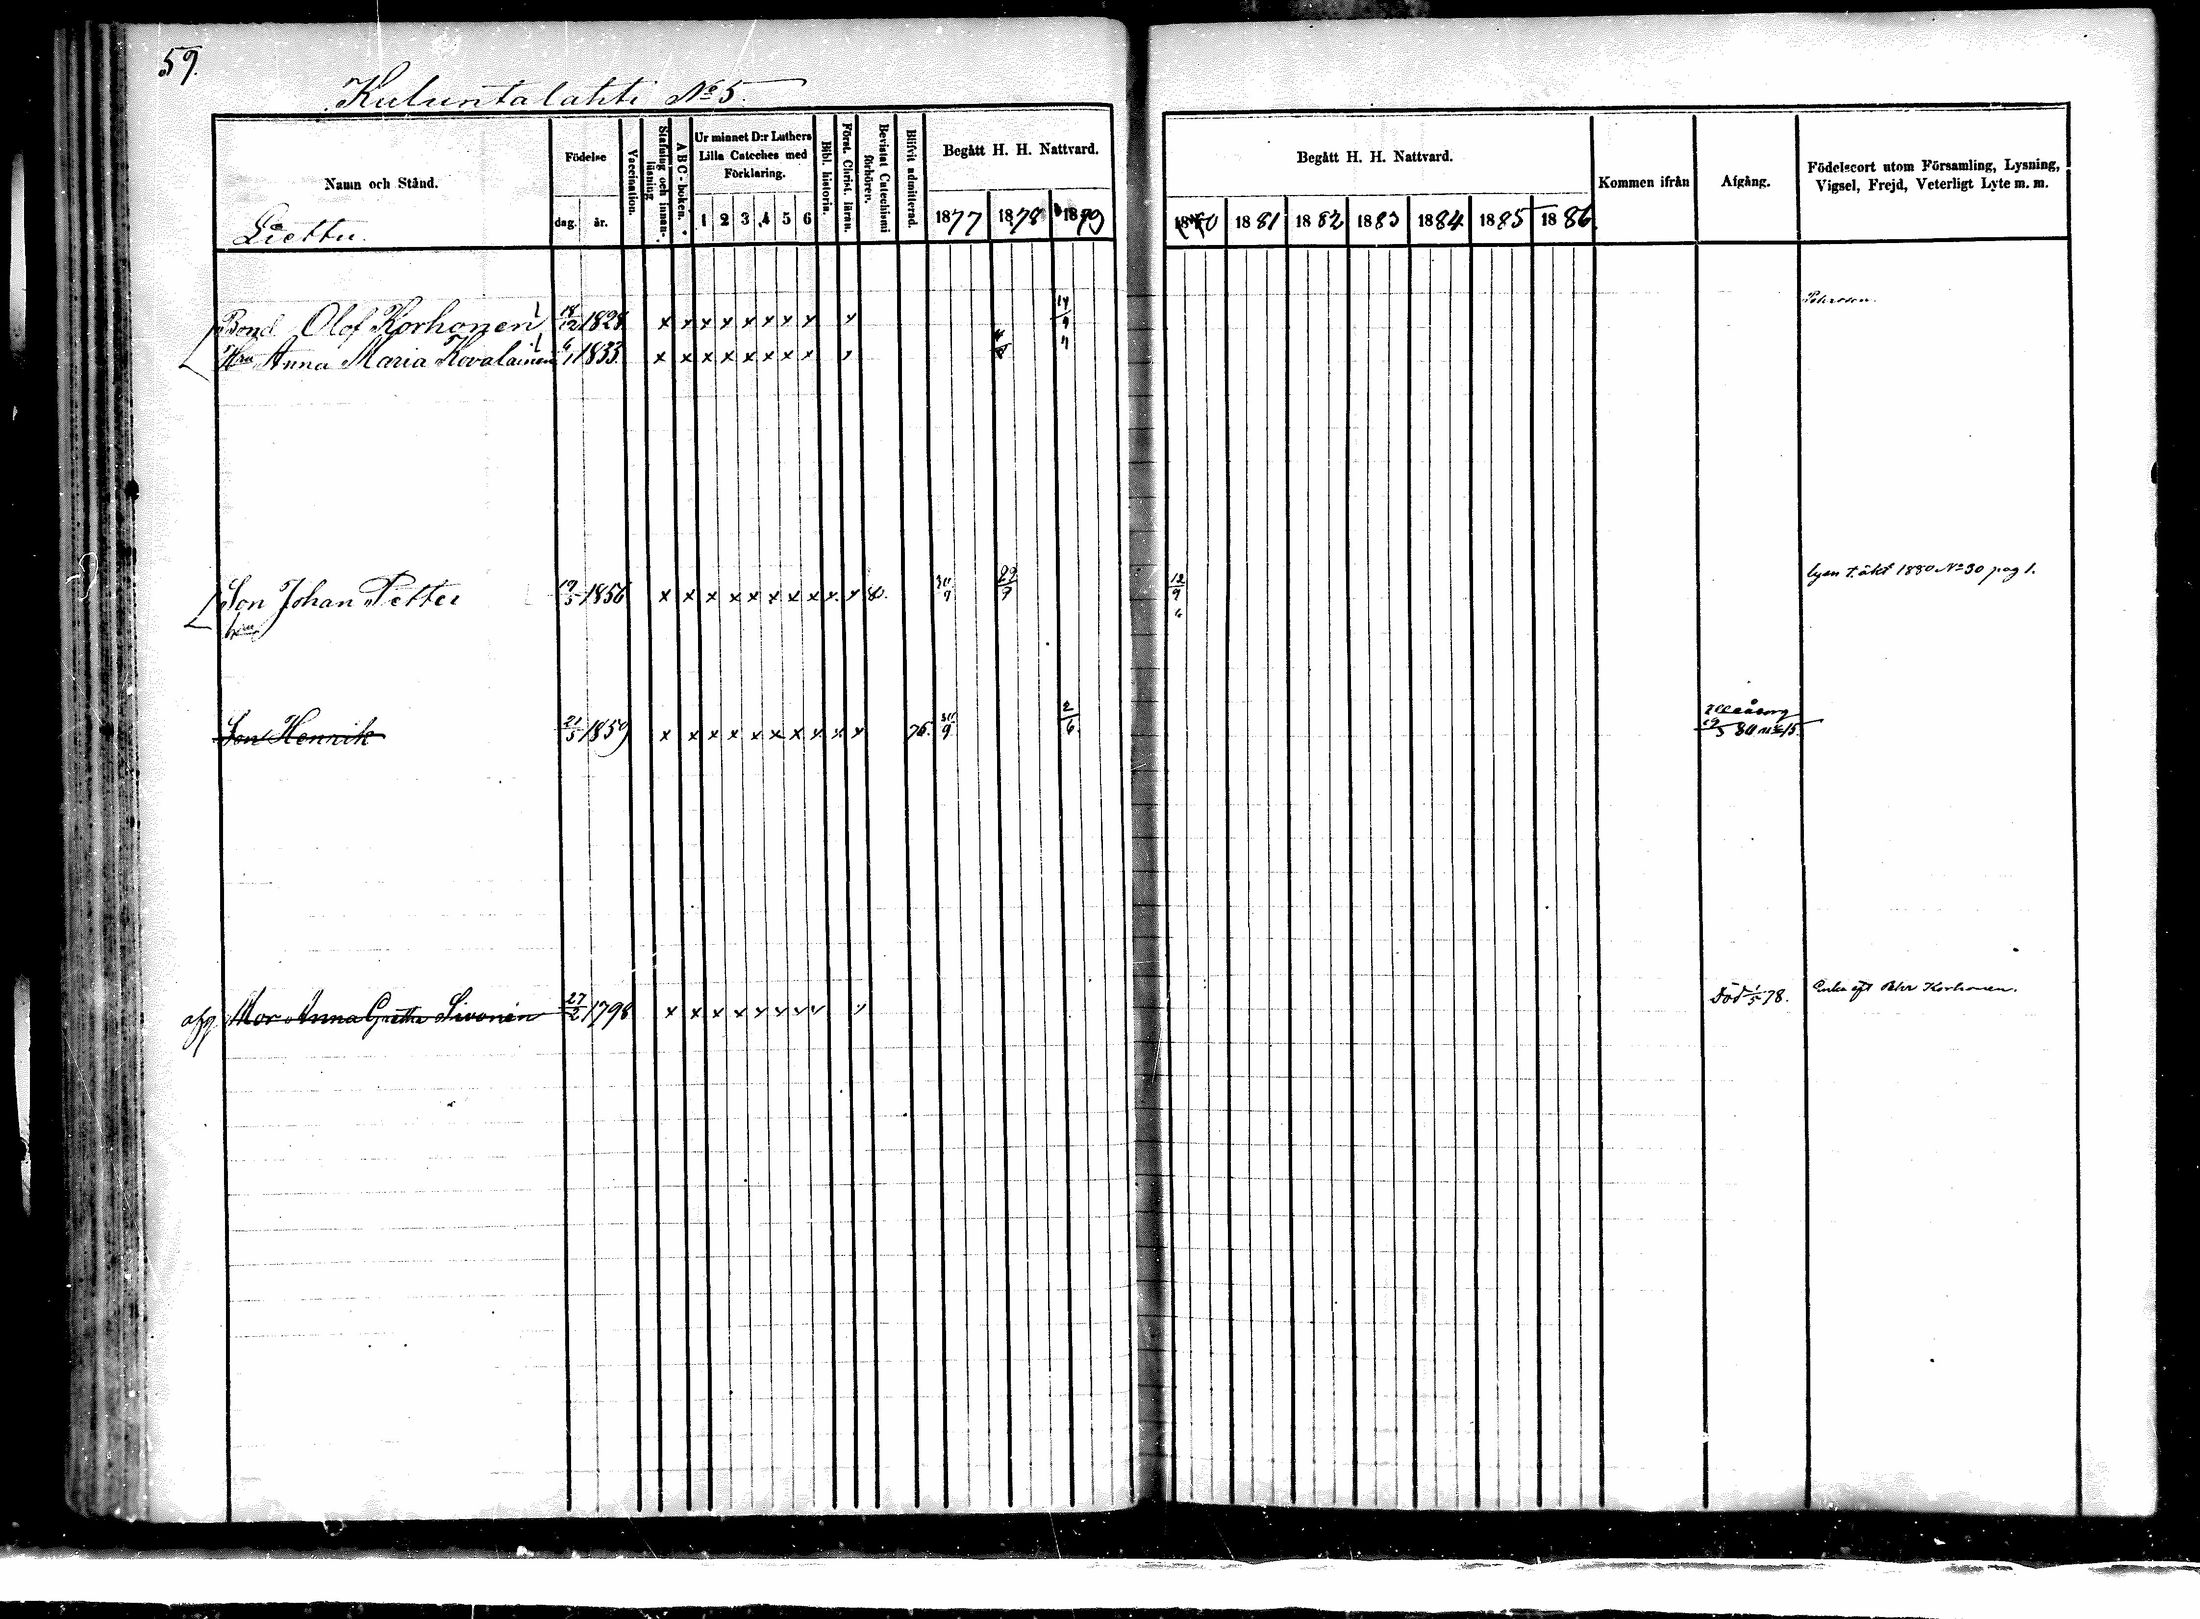 59.
Kuluntalahti No 5.
Namn och Stånd.
Födelse
dag. år.
Vaccination.
Stafning och innanläsning
ABC-boken.
Ur minnet D:r Luthers Lilla Cateches med Förklaring.
1 2 3 4 5 6
Bibl. historia.
Först. Christ. läran.
Bevistat Catechismi förhörer.
Blifvit admitterad.
Begått H. H. Nattvard.
1877 1878 1879
Begått H. H. Nattvard.
1880 1881 1882 1883 1884 1885 1886
Kommen ifrån
Afgång.
Födelseort utom Församling, Lysning,
Vigsel, Frejd, Veterligt Lyte m. m.
Liettu.
Bond. Olof Korhonen 1828 x x x x x x x x x 14/9
Hu Anna Maria Kovalainen 1833 x x x x x x x x
Son Johan Petter 1856 x x x x x x x x x x 80. 30/9 29/9 12/9 lysn t. äkt 1880 No 30 pag 1.
Son Henrik 21/5 1859 x x x x x x x x x x 76. 30/9 2/6 Uleåborg
19/5 80 No 15.
afg. Mor Anna Gretha Sivonen 27/2 1798 x x x x x x x x Död 1/5 78. Enka eft Petter Korhonen.